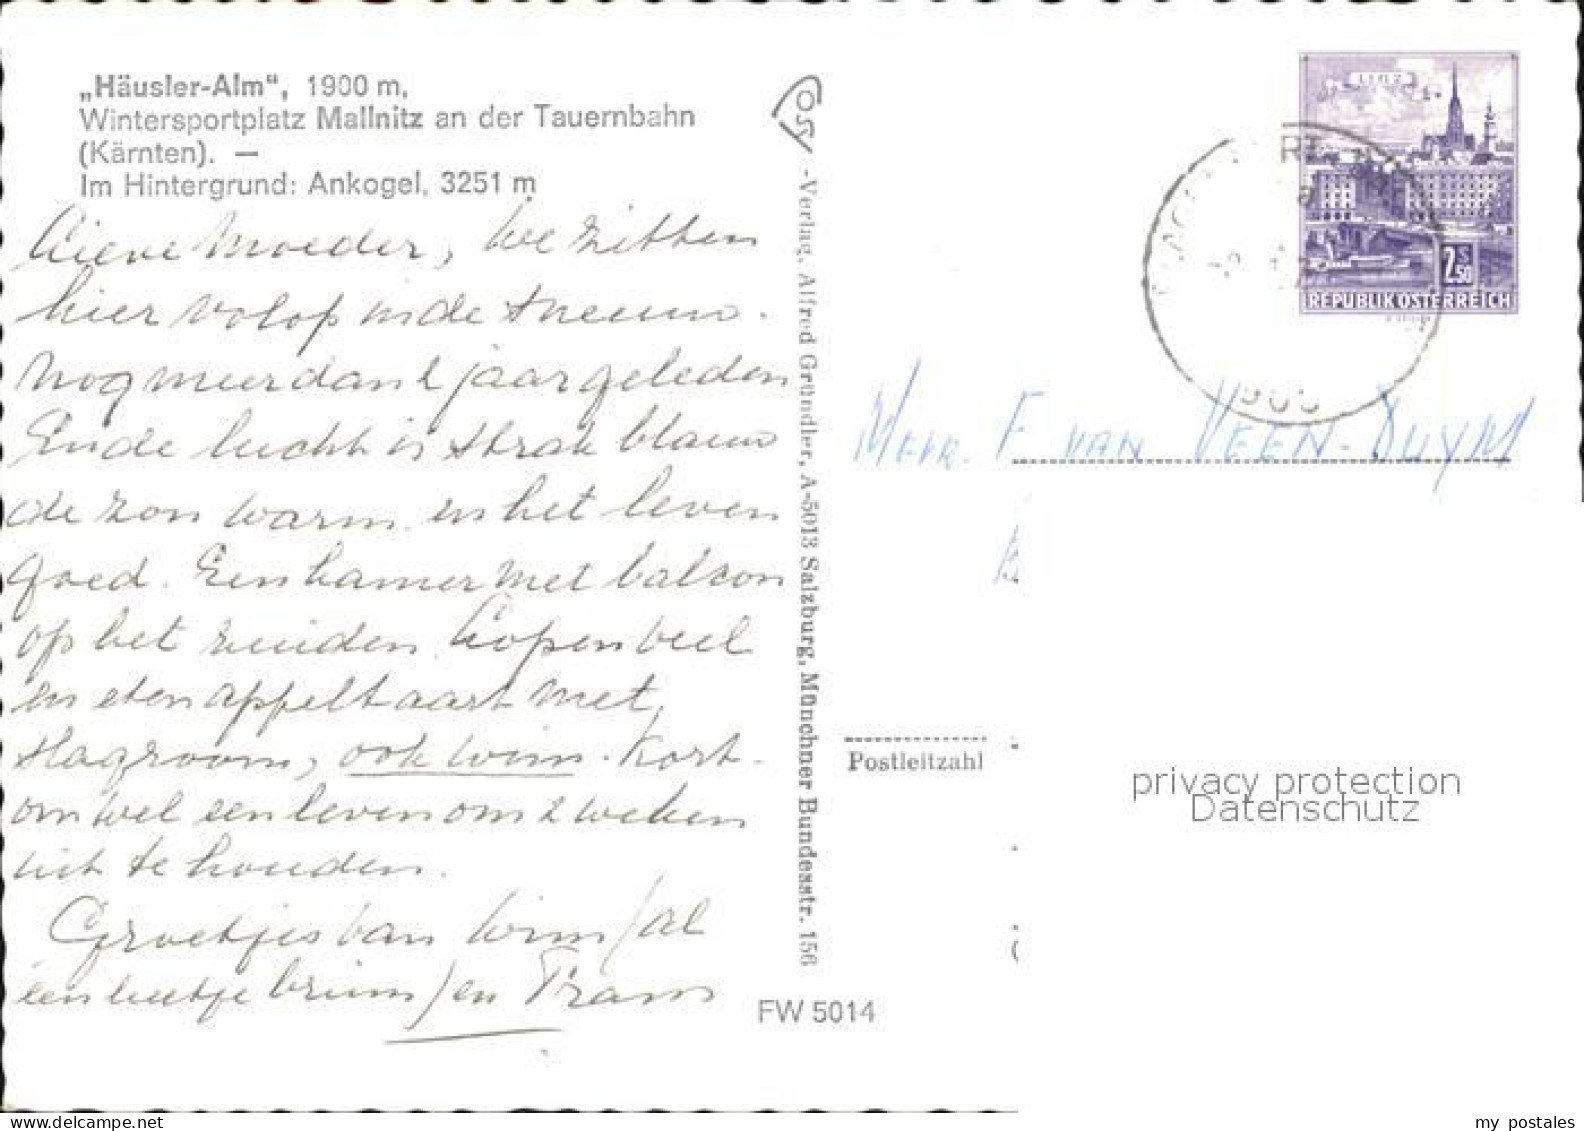 „Häusler-Alm“, 1900 m,
Wintersportplatz Mallnitz an der Tauernbahn
(Kärnten). —
Im Hintergrund: Ankogel, 3251 m
Lieve Moeder, We zitten
hier volop in de sneeuw.
Nog meer dan 2 jaar geleden
En de lucht is strak blauw
de zon warm en het leven
goed. Een kamer met balcon
op het zuiden. Lopen veel
en eten appeltaart met
slagroom, ook Wim. Kort-
om wel een leven om 2 weken
uit te houden.
Groetjes van Wim (al
een beetje bruin) en Frans
OSS
-Verlag, Alfred Gründler, A-5013 Salzburg, Münchner Bundesstr. 156
FW 5014
LINZ
2.50 S
REPUBLIK ÖSTERREICH
MEVR. F VAN VEEN-DUYM
Postleitzahl
privacy protection
Datenschutz
my postales